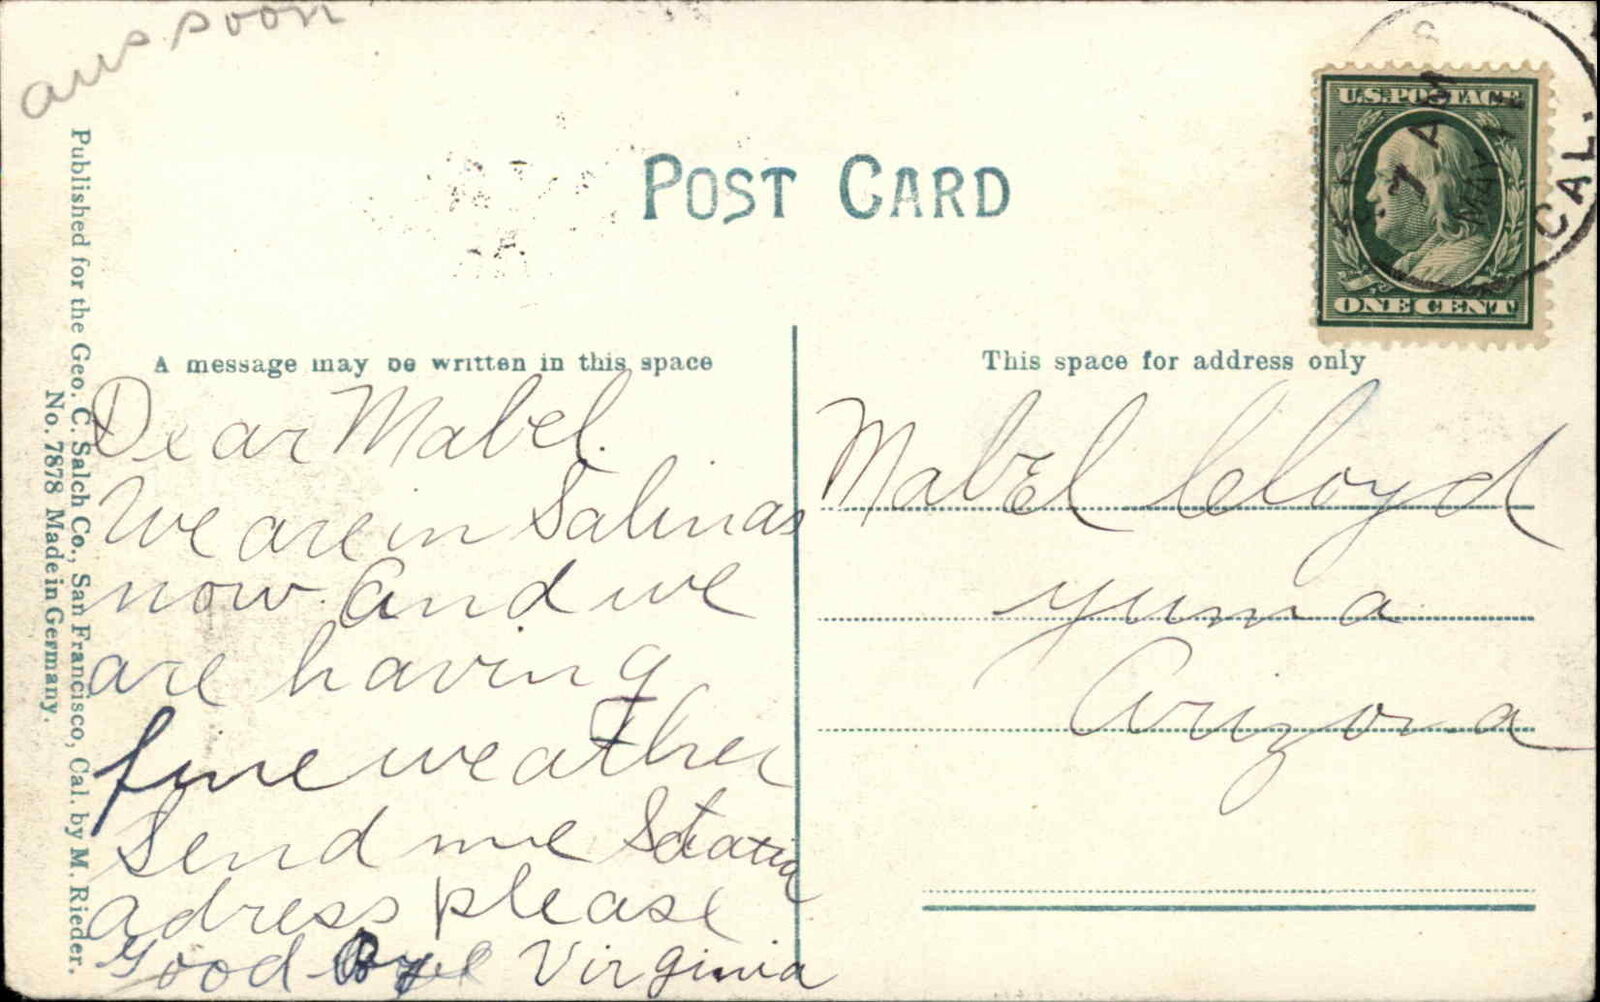 ans soon
POST CARD
U.S. POSTAGE
ONE CENT
7 AM
MAY
CAL.
Published for the Geo. C. Salch Co., San Francisco, Cal. by M. Rieder.
No. 7878 Made in Germany.
A message may be written in this space
Dear Mabel.
We are in Salinas
now. And we
are having
fine weather
Send me Statia
adress please
Good Bye Virginia
This space for address only
Mabel Cloyd
Yuma
Arizona